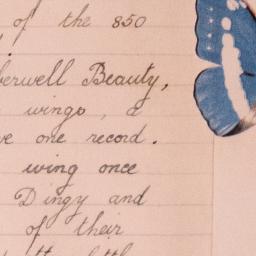 , of the 850
berwell Beauty,
wings, a
ve one record.
wing once
Dingy and
of their